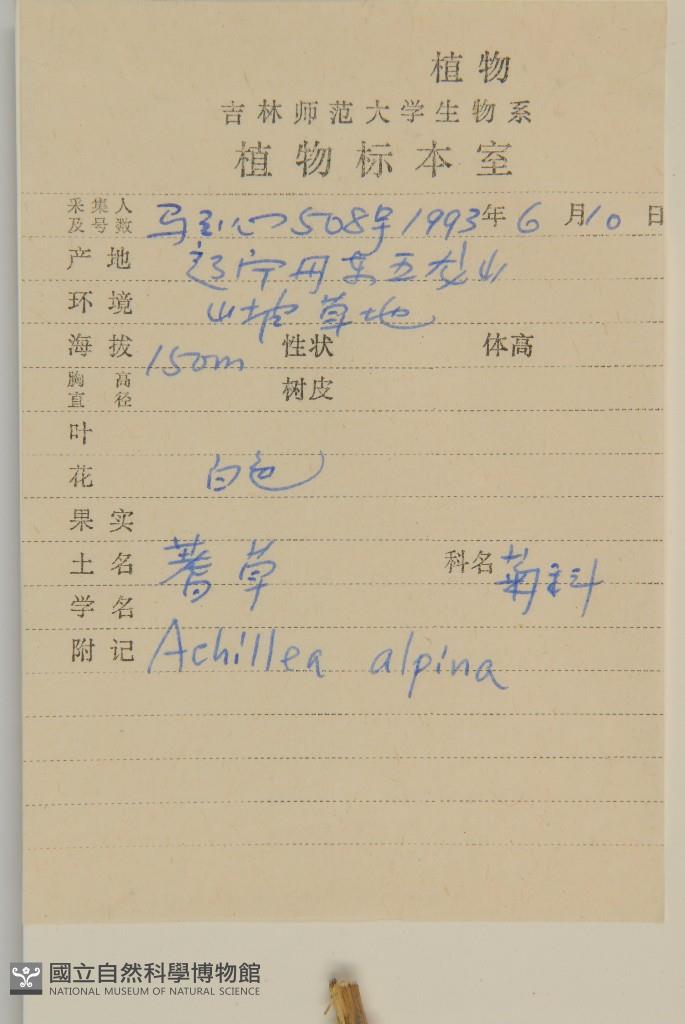 植物
吉林师范大学生物系
植物标本室
采集人及号数 马 508号 1993年6月10日
产地 辽宁丹东五龙山
环境 山坡草地
海拔 150m 性状 体高
胸高直径 树皮
叶
花 白色
果实
土名 蓍草 科名 菊科
学名
附记 Achillea alpina
國立自然科學博物館
NATIONAL MUSEUM OF NATURAL SCIENCE